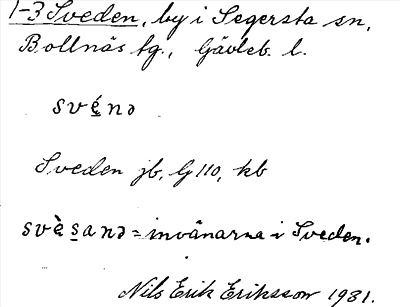 1-3 Sveden, by i Segersta sn,
Bollnäs tg., Gävleb. l.
své̱nə
Sveden jb, G 110, kb
svè̱s̱anə = invånarna i Sveden.
Nils Erik Eriksson 1981.